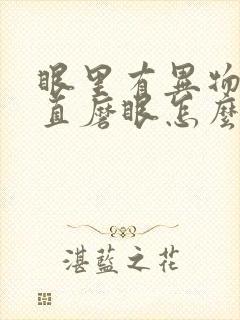 眼里有异物
直磨眼怎麼
湛藍之花